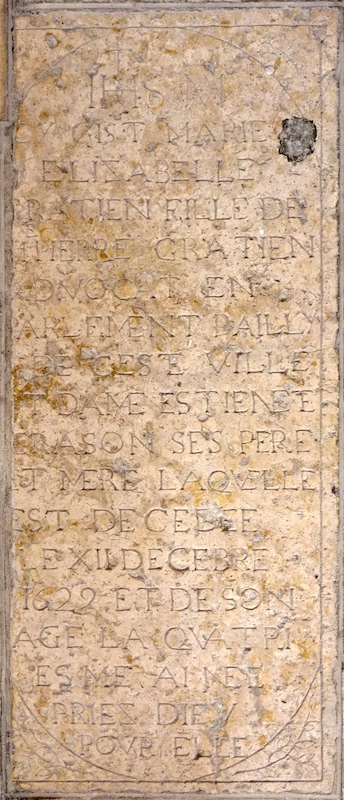 IHS M
CY GIST MARIE
ELIZABELLE
GRATIEN FILLE DE
PIERRE GRATIEN
ADVOCAT EN
PARLEMENT BAILLY
DE CESTE VILLE
ET DAME ESTIENETE
FRASON SES PERE
ET MERE LAQVELLE
EST DECEDEE
LE XII DECEBRE
1622 ET DE SON
AGE LA QVATRI
ESME AINEE
PRIEZ DIEV
POVR ELLE